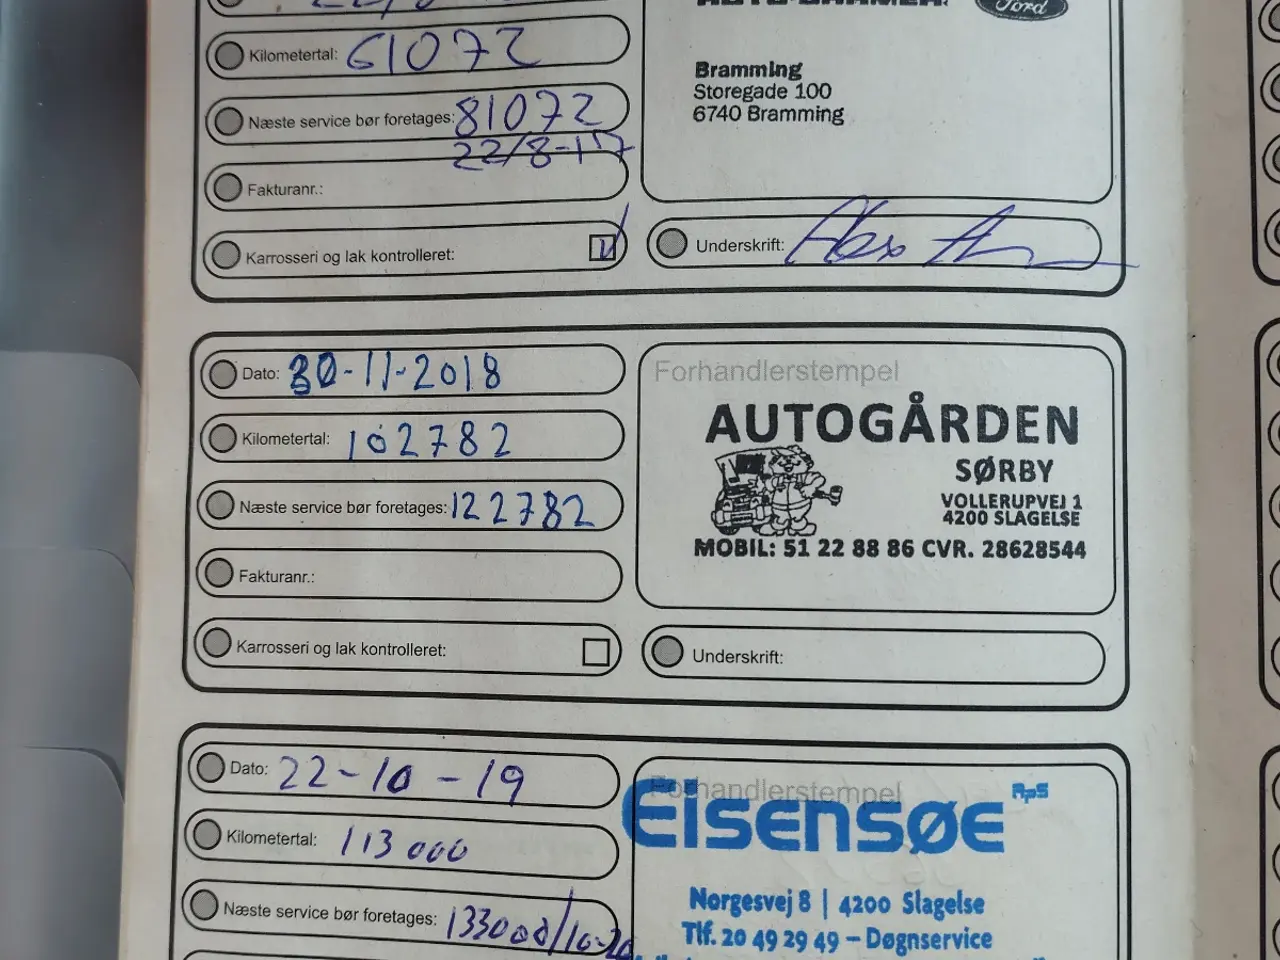 Ford
Kilometertal: 61072
Bramming
Storegade 100
6740 Bramming
Næste service bør foretages: 81072
22/8-17
Fakturanr.:
Karrosseri og lak kontrolleret:
Underskrift:
Dato: 30-11-2018
Forhandlerstempel
AUTOGÅRDEN
SØRBY
VOLLERUPVEJ 1
4200 SLAGELSE
MOBIL: 51 22 88 86 CVR. 28628544
Kilometertal: 102782
Næste service bør foretages: 122782
Fakturanr.:
Karrosseri og lak kontrolleret:
Underskrift:
Dato: 22-10-19
Forhandlerstempel
Eisensøe ApS
Kilometertal: 113000
Norgesvej 8 | 4200 Slagelse
Tlf. 20 49 29 49 – Døgnservice
Næste service bør foretages: 133000/10-20